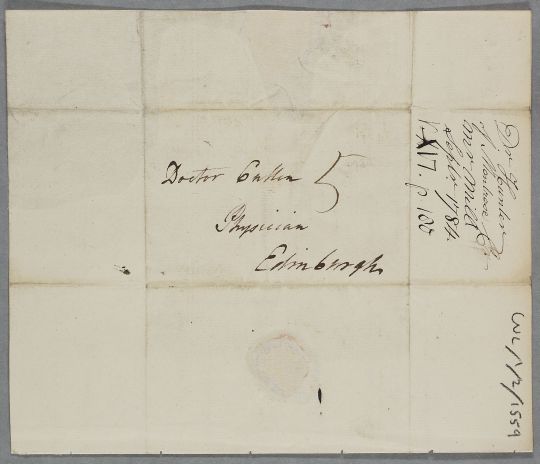 Doctor Cullen 5
Physician
Edinburgh
Dr Hunter
of Montrose
Mr Mill
Septr 1784.
V. XVII. p 100
CUL/1/2/1559